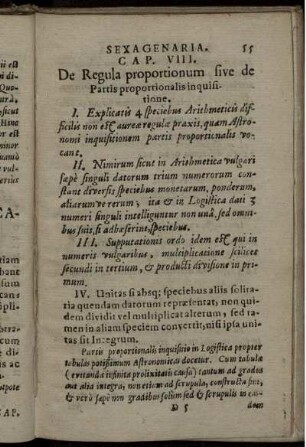 SEXAGENARIA. 55
CAP. VIII.
De Regula proportionum sive de
Partis proportionalis inquisi-
tione.
I. Explicatis 4 speciebus Arithmeticis dif-
ficilis non est aureæ regulæ praxis, quam Astro-
nomi inquisitionem partis proportionalis vo-
cant.
II. Nimirum sicut in Arithmetica vulgari
sæpè singuli datorum trium numerorum con-
stant diversis speciebus monetarum, ponderum,
aliarumve rerum; ita & in Logistica dati 3
numeri singuli intelliguntur non unâ, sed omni-
bus suis, si adhæserint, speciebus.
III. Supputationis ordo idem est qui in
numeris vulgaribus, multiplicatione scilicet
secundi in tertium, & producti divisione in pri-
mum.
IV. Unitas si absq; speciebus aliis solita-
ria quendam datorum repræsentat; non qui-
dem dividit vel multiplicat alterum, sed ta-
men in aliam speciem convertit; nisi ipsa uni-
tas sit Integrum.
Partis proportionalis inquisitio in Logistica propter
tabulas potissimum Astronomicas docetur. Cum tabulæ
( evitandæ infinitæ prolixitatis causâ) tantùm ad gradus
aut alia integra, non etiam ad scrupula, constructæ sint,
& verò sæpè non gradibus solùm sed & scrupulis in ean-
D 5 dem